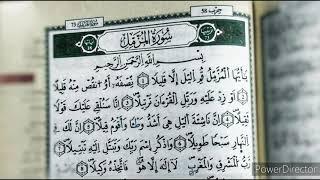 حزب 58
سُورَةُ الْمُزَّمِّلِ
بِسْمِ اللَّهِ الرَّحْمَٰنِ الرَّحِيمِ
يَا أَيُّهَا الْمُزَّمِّلُ قُمِ الَّيْلَ إِلَّا قَلِيلًا نِّصْفَهُ أَوِ انقُصْ مِنْهُ قَلِيلًا
أَوْ زِدْ عَلَيْهِ وَرَتِّلِ الْقُرْآنَ تَرْتِيلًا إِنَّا سَنُلْقِي عَلَيْكَ قَوْلًا
إِنَّ نَاشِئَةَ الَّيْلِ هِيَ أَشَدُّ وَطْئًا وَأَقْوَمُ قِيلًا إِنَّ لَكَ فِي
النَّهَارِ سَبْحًا طَوِيلًا وَاذْكُرِ اسْمَ رَبِّكَ وَتَبَتَّلْ إِلَيْهِ تَبْتِيلًا
رَّبُّ الْمَشْرِقِ وَالْمَغْرِبِ لَا إِلَٰهَ إِلَّا هُوَ فَاتَّخِذْهُ وَكِيلًا
PowerDirector